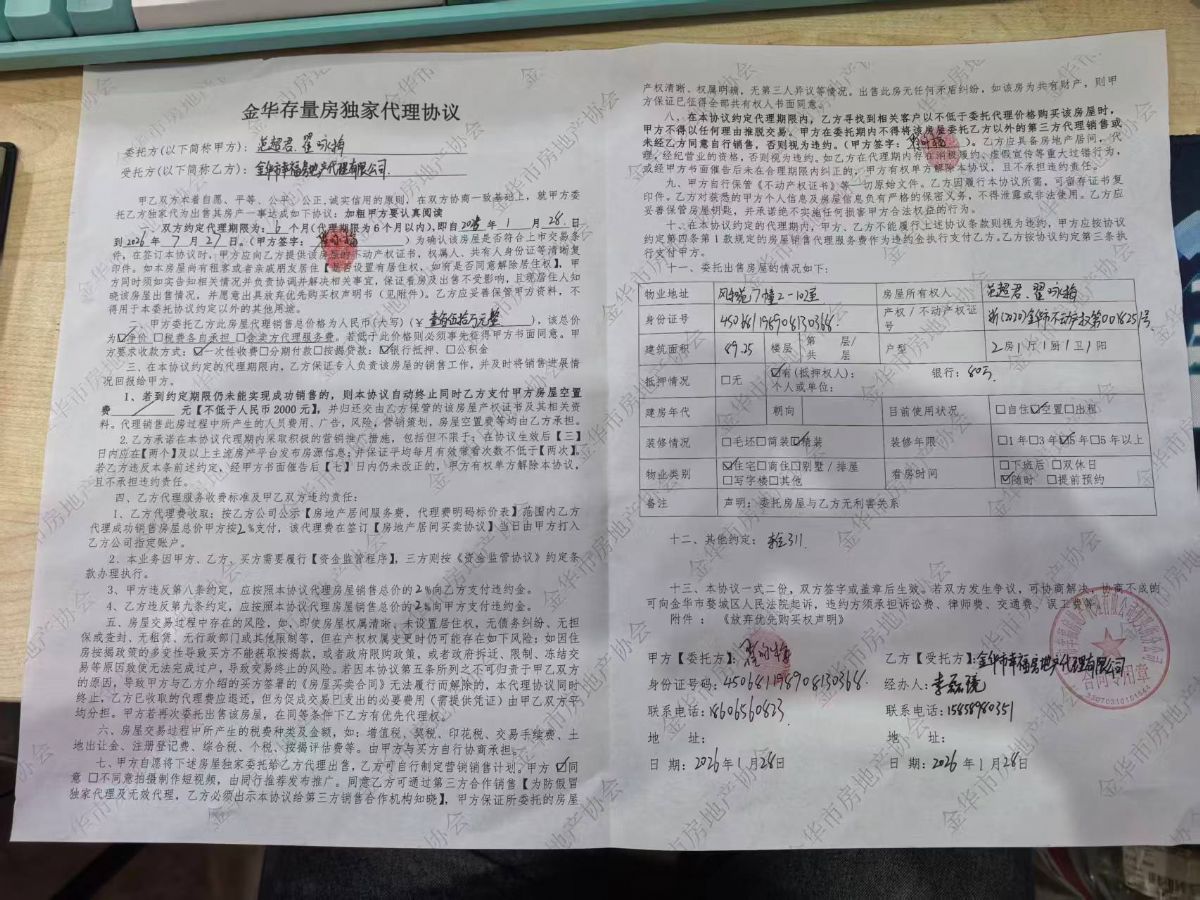 金华存量房独家代理协议
委托方(以下简称甲方):
受托方(以下简称乙方): 金华市幸福房地产代理有限公司
甲乙双方本着自愿、平等、公平、公正、诚实信用的原则，在双方协商一致基础上，就甲方委
托乙方独家代为出售其房产一事达成如下协议: 加粗甲方要认真阅读
一、双方约定代理期限为: 6 个月(代理期限为6个月以内), 即自 年 1 月 28 日
到 2026 年 7 月 27 日。(甲方签字: )为确认该房屋是否符合上市交易条
件, 在签订本协议时, 甲方应向乙方提供该房屋的不动产权证书, 权属人、共有人身份证等清晰复
印件。如本房屋尚有租客或者亲戚朋友居住【是否设置有居住权, 如有是否同意解除居住权】, 甲
方同时须如实告知相关情况并负责协调并解决相关事宜, 保证看房及出售不受影响, 且现居住人知
晓该房屋出售情况, 并愿意出具放弃优先购买权声明书（见附件）。乙方应妥善保管甲方资料, 不
得用于本委托协议约定以外的其他用途。
二、甲方委托乙方此房屋代理销售总价格为人民币(大写)(￥ 壹佰伍拾万元整 ), 该总价
为☑净价 □税费各自承担 □含卖方代理服务费。若低于此价格则必须事先征得甲方书面同意。甲
方要求收款方式: ☑一次性收费□分期付款□按揭贷款: ☑银行抵押、□公积金
三、在本协议约定的代理期限内, 乙方保证专人负责该房屋的销售工作, 并及时将销售进展情
况回报给甲方。
1、若到约定期限仍未能实现成功销售的, 则本协议自动终止同时乙方支付甲方房屋空置
费 / 元【不低于人民币 2000 元】, 并归还交由乙方保管的该房屋产权证书及其相关资
料。代理售此房过程中所产生的人员费用、广告, 风险, 营销策划, 房屋空置费等均由乙方承担。
2. 乙方承诺在本协议代理期内采取积极的营销推广措施, 包括但不限于: 在协议生效后【三】
日内应在【两个】及以上主流房产平台发布房源信息; 并保证平均每月有效带看次数不低于【两次】。
若乙方违反本条前述约定, 经甲方书面催告后【七】日内仍未改正的, 甲方有权单方解除本协议,
且不承担违约责任。
四、乙方代理服务收费标准及甲乙双方违约责任:
1、乙方代理费收取: 按乙方公司公示【房地产居间服务费, 代理费明码标价表】范围内乙方
代理成功销售房屋总价甲方按2%支付, 该代理费在签订【房地产居间买卖协议】当日由甲方打入
乙方公司指定账户。
2. 本业务因甲方、乙方、买方需要履行【资金监管程序】, 三方则按《资金监管协议》约定条
款办理执行。
3、甲方违反第八条约定, 应按照本协议代理房屋销售总价的2%向乙方支付违约金。
4、乙方违反第九条约定, 应按照本协议代理房屋销售总价的2%向甲方支付违约金。
五、房屋交易过程中存在的风险, 如、即使房屋权属清晰、未设置居住权, 无债务纠纷、无担
保或查封、无租赁、无行政部门或其他限制等, 但在产权权属变更时仍可能存在如下风险: 如因住
房按揭政策的多变性导致买方不能获取按揭款, 或者政府限购政策, 或者政府拆迁、限制、冻结交
易等原因致使无法完成过户, 导致交易终止的风险。若因本协议第五条所列之不可归责于甲乙双方
的原因, 导致甲方与乙方介绍的买方签署的《房屋买卖合同》无法履行而解除的, 本代理协议同时
终止, 乙方已收取的代理费应退还, 但为促成交易已支出的必要费用(需提供凭证)由甲乙双方平
均分担。甲方若再次委托出售该房屋, 在同等条件下乙方有优先代理权。
六、房屋交易过程中所产生的税费种类及金额, 如: 增值税、契税、印花税、交易手续费、土
地出让金、注册登记费、综合税、个税、按揭评估费等。由甲方与买方自行协商承担。
七、甲方自愿将下述房屋独家委托给乙方代理出售, 乙方可自行制定营销销售计划, 甲方 ☑同
意 □不同意拍摄制作短视频, 由同行推荐发布推广。同意乙方可通过第三方合作销售【为防假冒
独家代理及无效代理, 乙方必须出示本协议给第三方销售合作机构知晓】, 甲方保证所委托的房屋
产权清晰、权属明确, 无第三人异议等情况。出售此房无任何矛盾纠纷, 如该房为共有财产, 则甲
方保证已征得全部共有权人书面同意。
八、在本协议约定代理期限内, 乙方寻找到相关客户以不低于委托代理价格购买该房屋时,
甲方不得以任何理由推脱交易。甲方在委托期内不得将该房屋委托乙方以外的第三方代理销售或
未经乙方同意自行销售, 否则视为违约。(甲方签字: )。乙方应具备房地产居间, 代
理, 经纪营业的资格, 否则视为违约。如乙方在代理期内存在消极履约、虚假宣传等重大过错行为,
或经甲方书面催告后未在合理期限内纠正的, 甲方有权单方解除本协议, 且不承担违约责任。
九、甲方自行保管《不动产权证书》等一切原始文件。乙方因履行本协议所需, 可留存证书复
印件。乙方对获悉的甲方个人信息及房屋信息负有严格的保密义务, 不得泄露或非法使用。乙方应
妥善保管房屋钥匙, 并承诺绝不实施任何损害甲方合法权益的行为。
十、在本协议约定的代理期内, 甲方、乙方不能履行上述协议条款则视为违约, 甲方应按协议
约定第四条第 1 款规定的房屋销售代理服务费作为违约金执行支付乙方。乙方按协议约定第三条执
行支付甲方。
十一、委托出售房屋的情况如下:
物业地址 7幢2-102室 房屋所有权人
身份证号 450681198908130368 产权/不动产权证号 浙(2020)金华市不动产权第0018251号
建筑面积 89.25 楼层 第 层/共 层 户型 2房1厅1厨1卫1阳
抵押情况 □无 ☑有(抵押权人): 个人或单位: 银行: 80万
建房年代 朝向 目前使用状况 □自住☑空置□出租
装修情况 □毛坯□简装☑精装 装修年限 □1年□3年☑5年□5年以上
物业类别 ☑住宅□商住□别墅/排屋 □写字楼□其他 看房时间 □下班后 □双休日 ☑随时 □提前预约
备注 声明: 委托房屋与乙方无利害关系
十二、其他约定:
十三、本协议一式二份, 双方签字或盖章后生效。若双方发生争议, 可协商解决, 协商不成的
可向金华市婺城区人民法院起诉, 违约方须承担诉讼费、律师费、交通费、误工费等。
附件: 《放弃优先购买权声明》
甲方【委托方】: 乙方【受托方】: 金华市幸福房地产代理有限公司
身份证号码: 450681198908130368 经办人:
联系电话: 18606560823 联系电话: 15858980351
地 址: 地 址:
日 期: 2026年1月28日 日 期: 2026年1月28日
合同专用章